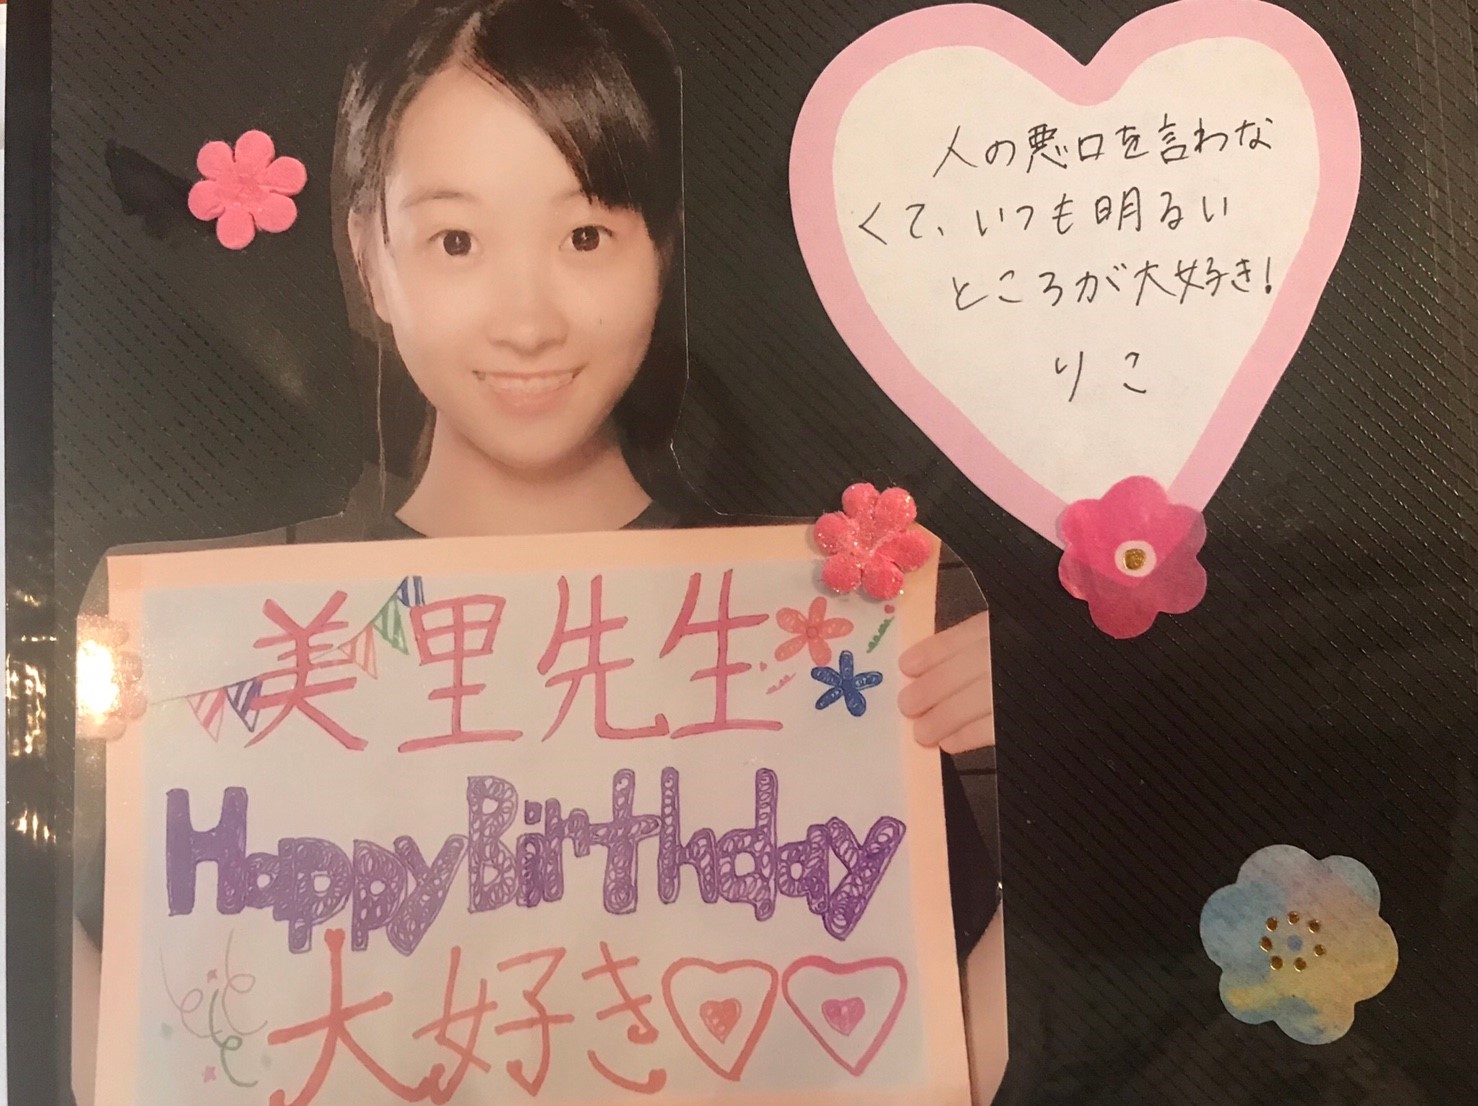 人の悪口を言わな
くて、いつも明るい
ところが大好き!
りこ
美里先生
Happy Birthday
大好き